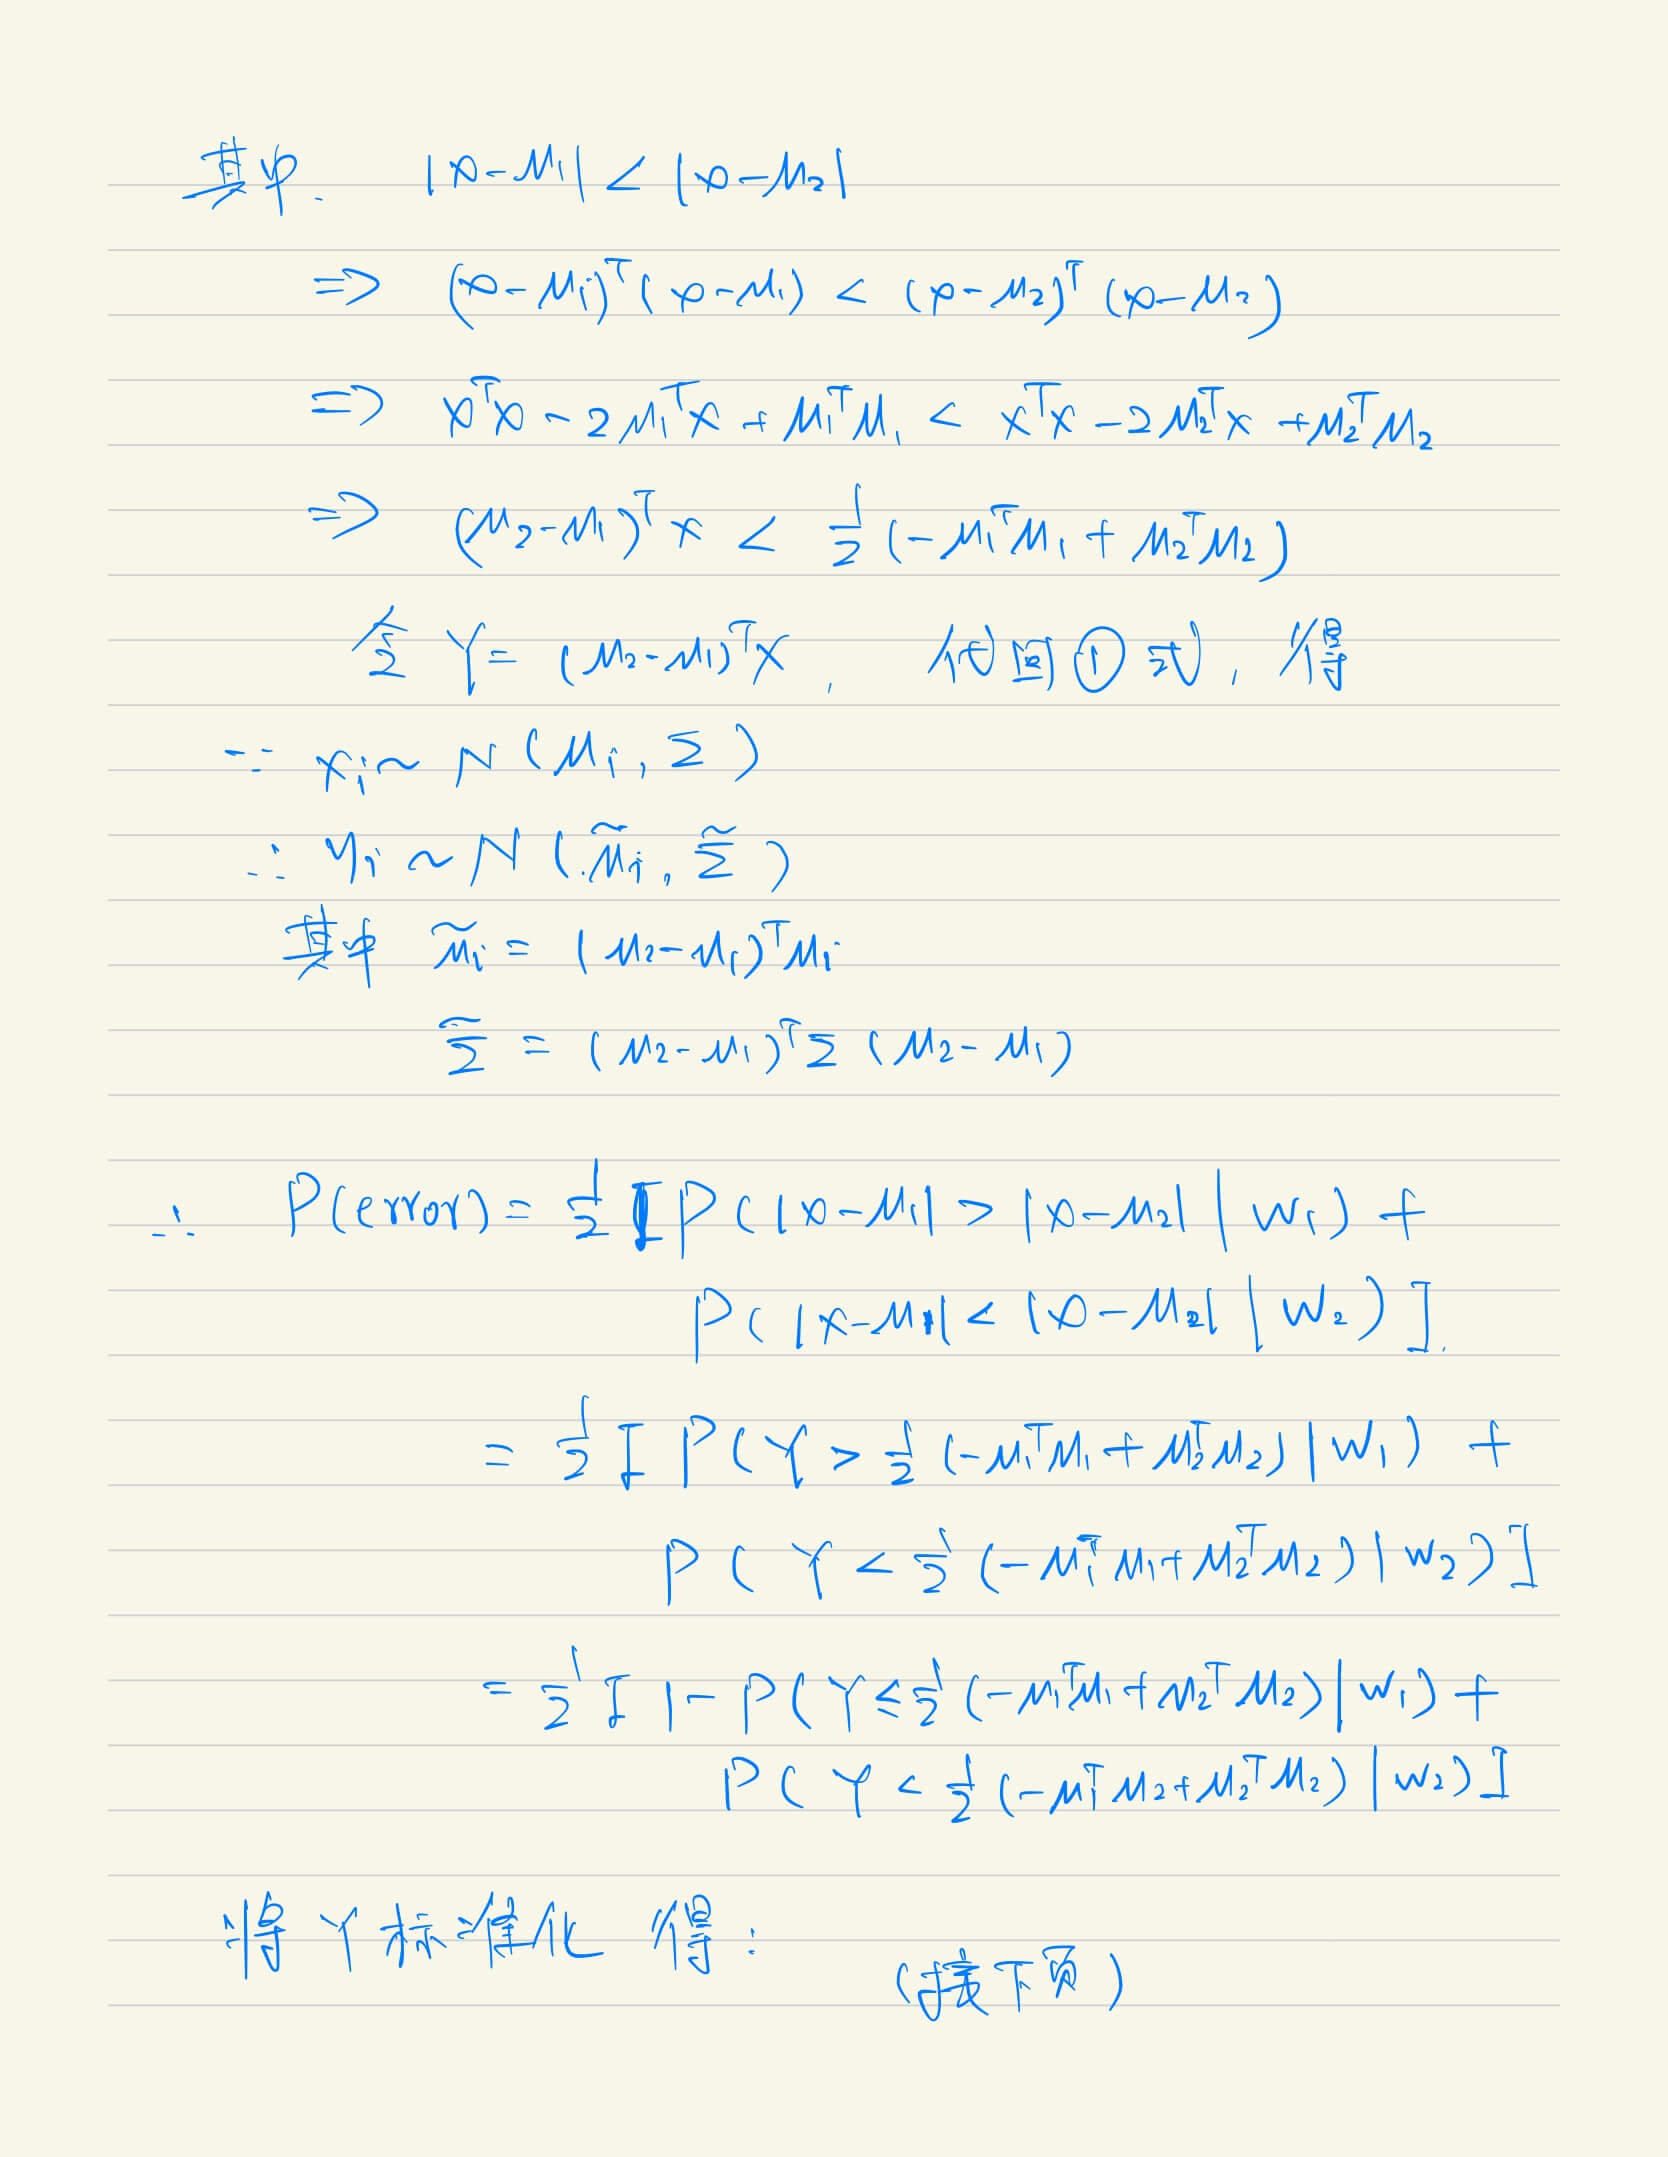 其中. |x-μ₁| < |x-μ₂|
=> (x-μ₁)ᵀ(x-μ₁) < (x-μ₂)ᵀ(x-μ₂)
=> xᵀx - 2μ₁ᵀx + μ₁ᵀμ₁ < xᵀx - 2μ₂ᵀx + μ₂ᵀμ₂
=> (μ₂-μ₁)ᵀx < 1/2(-μ₁ᵀμ₁ + μ₂ᵀμ₂)
令 Y = (μ₂-μ₁)ᵀX, 代回①式, 得
∵ xᵢ ~ N(μᵢ, Σ)
∴ yᵢ ~ N(μ̃ᵢ, Σ̃)
其中 μ̃ᵢ = (μ₂-μ₁)ᵀμᵢ
Σ̃ = (μ₂-μ₁)ᵀΣ(μ₂-μ₁)
∴ P(error) = 1/2[P(|x-μ₁| > |x-μ₂| | w₁) +
P(|x-μ₁| < |x-μ₂| | w₂)].
= 1/2[P(Y > 1/2(-μ₁ᵀμ₁ + μ₂ᵀμ₂) | w₁) +
P(Y < 1/2(-μ₁ᵀμ₁ + μ₂ᵀμ₂) | w₂)]
= 1/2[1 - P(Y ≤ 1/2(-μ₁ᵀμ₁ + μ₂ᵀμ₂) | w₁) +
P(Y < 1/2(-μ₁ᵀμ₂ + μ₂ᵀμ₂) | w₂)]
将Y标准化 得:
(接下页)